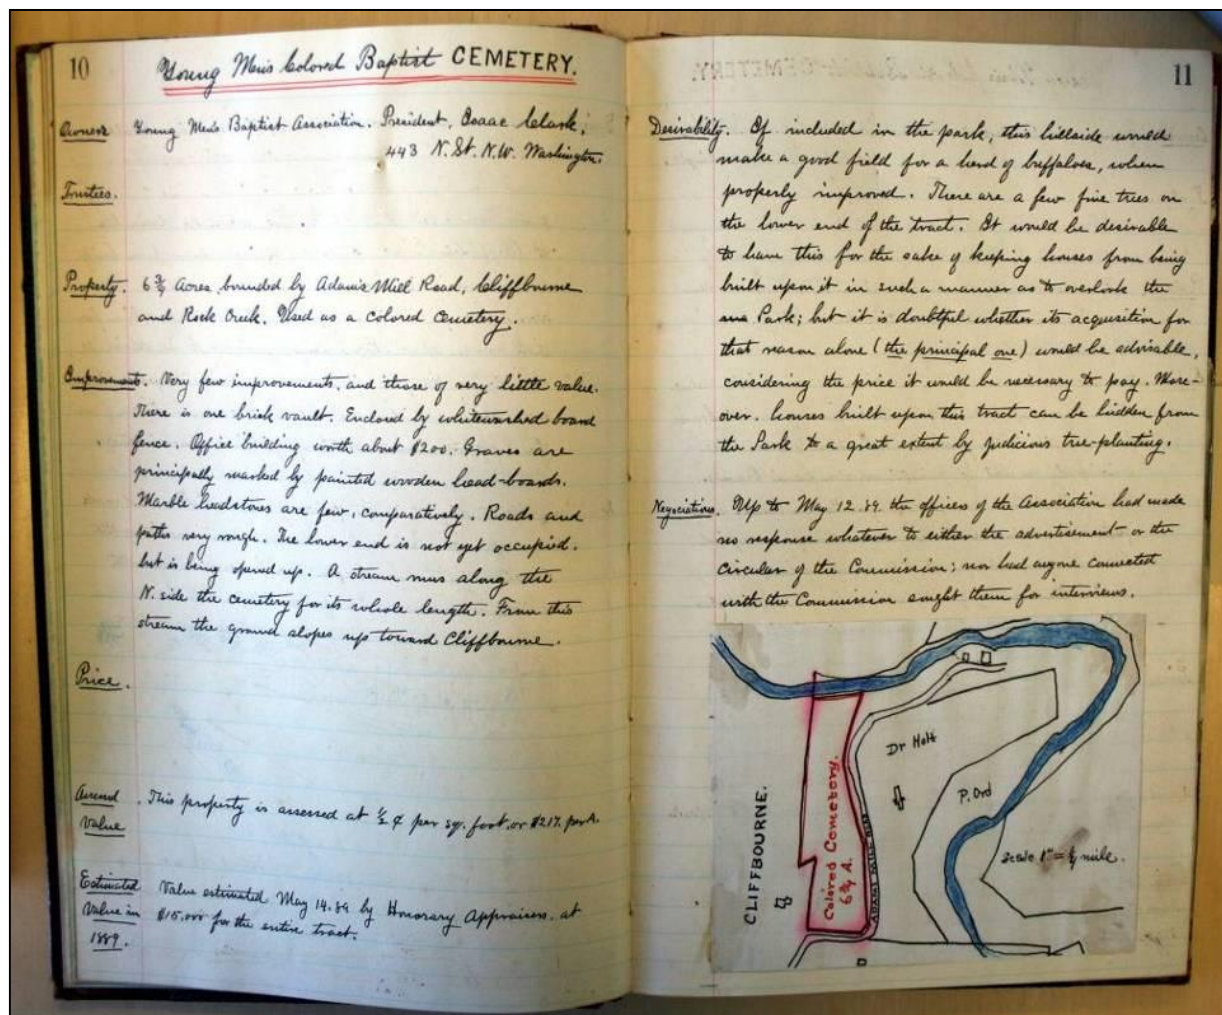 10
Young Men's Colored Baptist CEMETERY.
Owners Young Men's Baptist Association. President, Isaac Clark,
443 N. St. N.W. Washington.
Trustees.
Property. 6 3/4 Acres, bounded by Adams Mill Road, Cliffbourne
and Rock Creek. Used as a colored cemetery.
Improvements. Very few improvements, and those of very little value.
There is one brick vault. Enclosed by whitewashed board
fence. Office building worth about $200. Graves are
principally marked by painted wooden head-boards.
Marble headstones are few, comparatively. Roads and
paths very rough. The lower end is not yet occupied.
but is being opened up. A stream runs along the
N. side the cemetery for its whole length. From this
stream the ground slopes up toward Cliffbourne.
Price.
Assessed . This property is assessed at 1/2 ¢ per sq. foot, or $217. per A.
Value
Estimated Value estimated May 14. 89 by Honorary Appraisers. at
Value in $15.000 for the entire tract.
1889.
11
Desirability. If included in the park, this hillside would
make a good field for a herd of buffaloes, when
properly improved. There are a few fine trees on
the lower end of the tract. It would be desirable
to have this for the sake of keeping houses from being
built upon it in such a manner as to overlook the
Park; but it is doubtful whether its acquisition for
that reason alone (the principal one) would be advisable,
considering the price it would be necessary to pay. More-
over. houses built upon this tract can be hidden from
the Park to a great extent by judicious tree-planting.
Negociations. Up to May 12. 89. the officers of the Association had made
no response whatever to either the advertisement or the
circular of the Commission; nor had anyone connected
with the Commission sought them for interviews.
CLIFFBOURNE.
Colored Cemetery.
6 3/4 A.
ADAMS MILL RD
Dr Holt
P. Ord
Scale 1" = 1/8 mile.